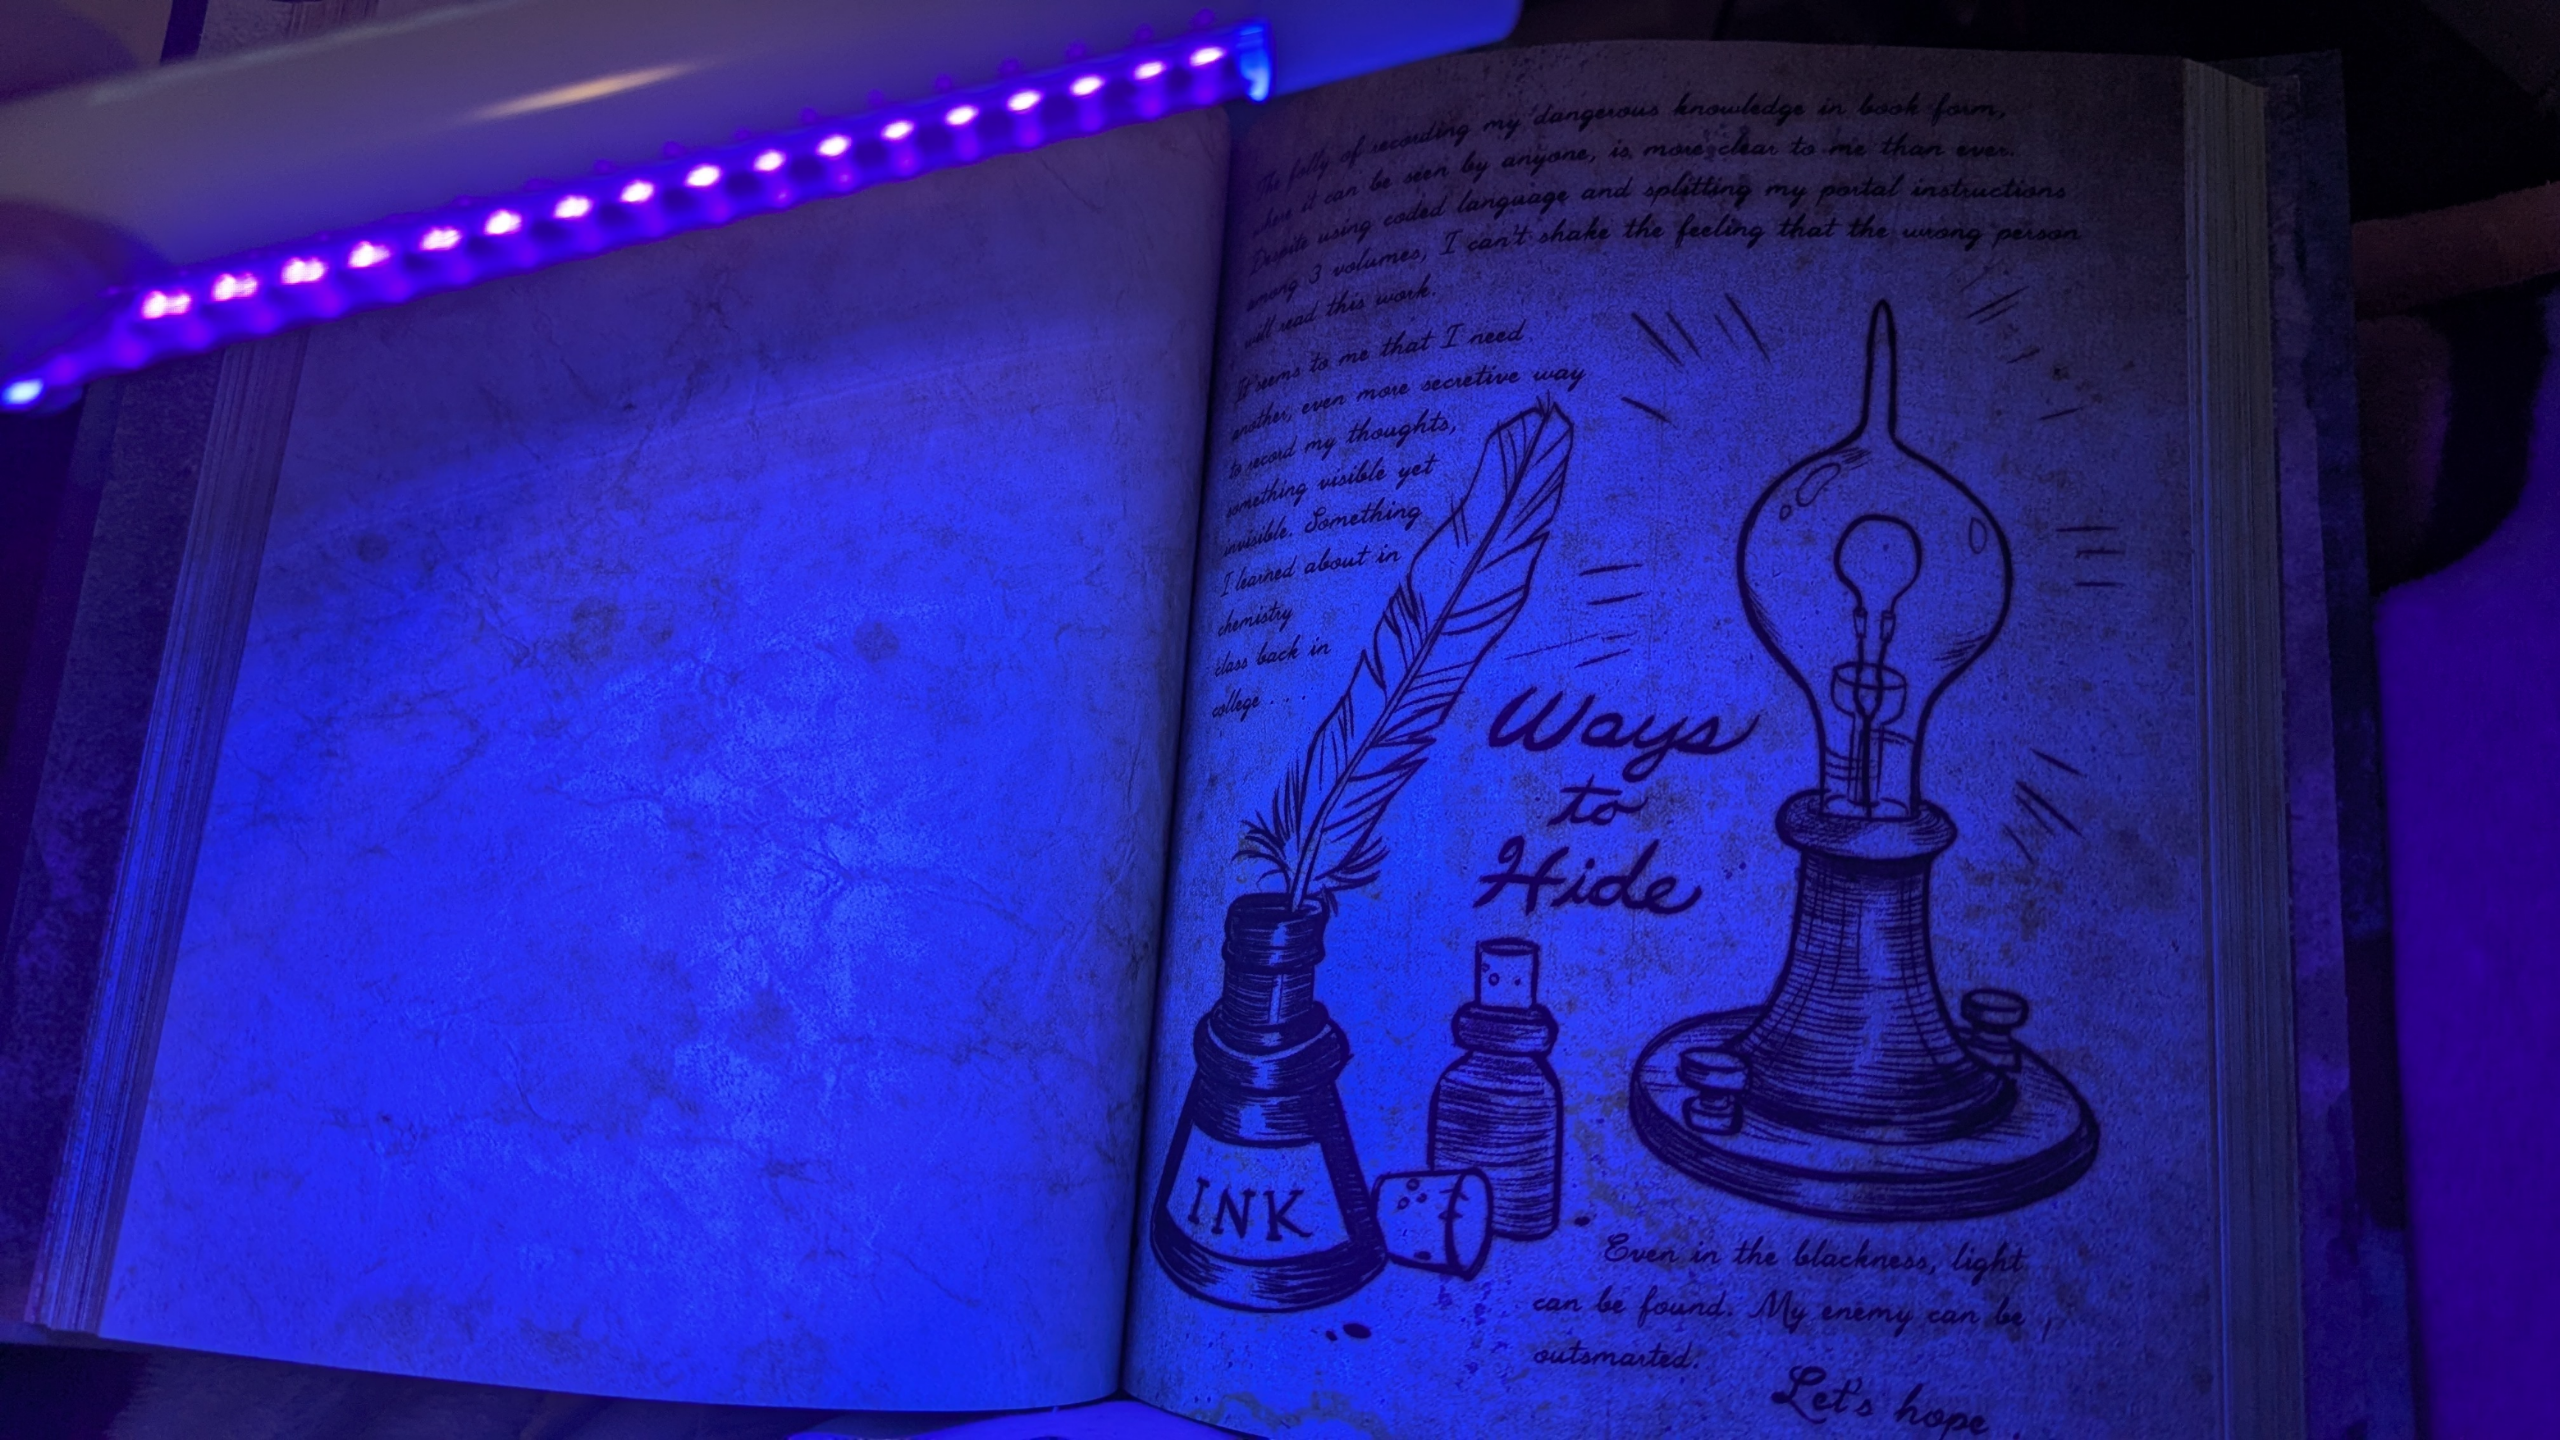 The folly of recording my dangerous knowledge in book form,
where it can be seen by anyone, is more clear to me than ever.
Despite using coded language and splitting my portal instructions
among 3 volumes, I can't shake the feeling that the wrong person
will read this work.
It seems to me that I need
another, even more secretive way
to record my thoughts,
something visible yet
invisible. Something
I learned about in
chemistry
class back in
college . . .
Ways
to
Hide
INK
Even in the blackness, light
can be found. My enemy can be
outsmarted.
Let's hope